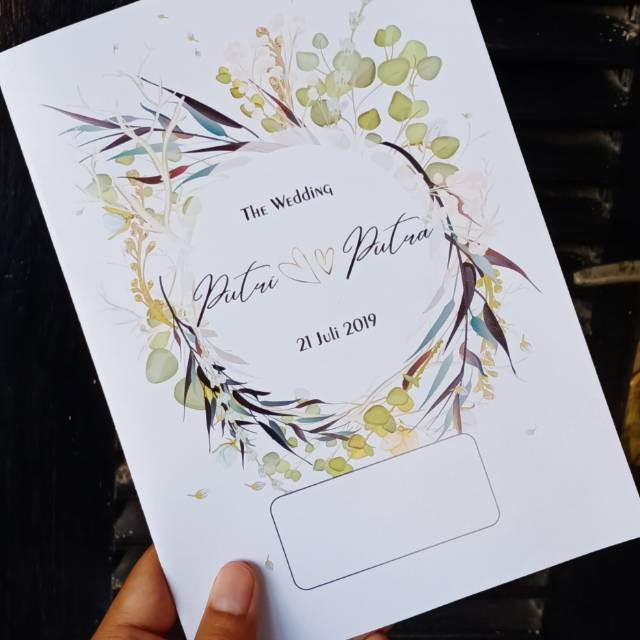 The Wedding
Putri Putra
21 Juli 2019